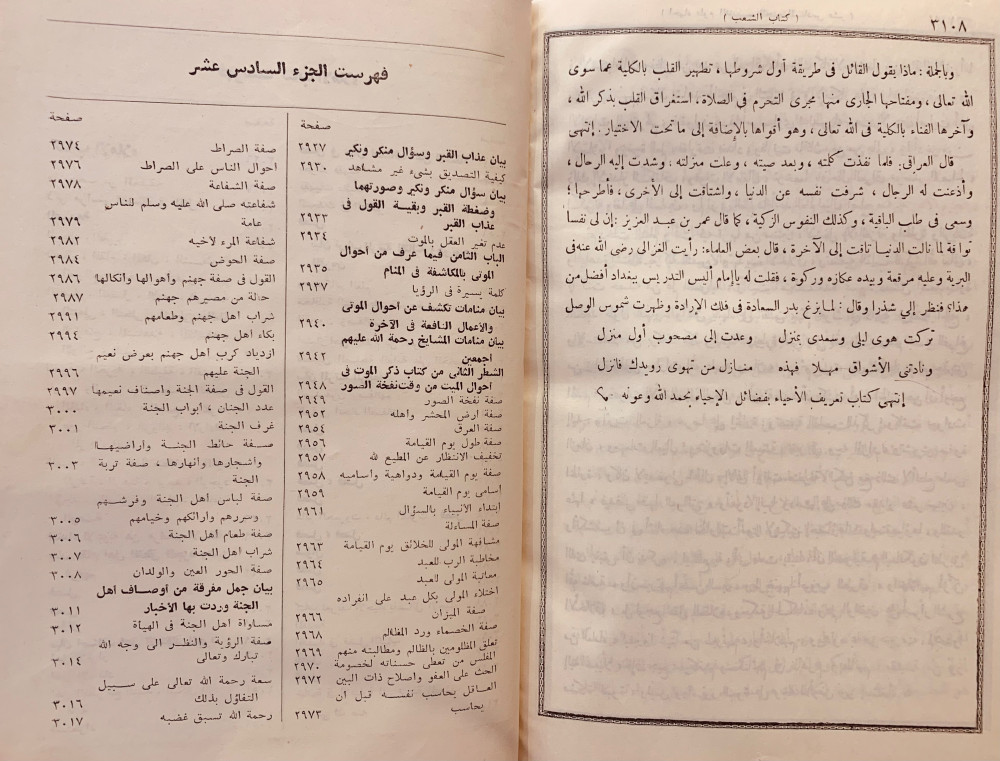 ٣١٠٨
( كتاب الشعب )
وبالجملة : ماذا يقول القائل فى طريقة أول شروطها ، تطهير القلب بالكلية عما سوى
الله تعالى ، ومفتاحها الجارى منها مجرى التحرم فى الصلاة. استغراق القلب بذكر الله ،
وآخرها الفناء بالكلية فى الله تعالى ، وهو أقواها بالإضافة إلى ما تحت الاختيار . إنتهى
قال العراقى: فلما نفذت كلمته ، وبعد صيته ، وعلت منزلته ، وشدت إليه الرحال ،
وأذعنت له الرجال ، شرفت نفسه عن الدنيا ، واشتاقت إلى الأخرى ، فأطرحها ؛
وسعى فى طلب الباقية ، وكذلك النفوس الزكية ، كما قال عمر بن عبد العزيز : إن لى نفسا
تواقة لما نالت الدنيا تاقت إلى الآخرة ، قال بعض العلماء: رأيت الغزالى رضى الله عنه فى
البرية وعليه مرقعة وبيده عكازه وركوة ، فقلت له يا إمام أليس التدريس ببغداد أفضل من
هذا؟ فنظر إلي شذرا وقال : لما بزغ بدر السعادة فى فلك الإرادة وظهرت شموس الوصل
تركت هوى ليلى وسعدى بمنزل وعدت إلى مصحوب أول منزل
ونادتنى الأشواق مهلا فهذه منازل من تهوى رويدك فانزل
إنتهى كتاب تعريف الأحياء بفضائل الإحياء بحمد الله وعونه
فهرست الجزء السادس عشر
صفحة
بيان عذاب القبر وسؤال منكر ونكير ٢٩٢٧
كيفية التصديق بشىء غير مشاهد ٢٩٣٠
بيان سؤال منكر ونكير وصورتهما
وضغطة القبر وبقية القول فى
عذاب القبر ٢٩٣٣
عدم تغير العقل بالموت ٢٩٣٤
الباب الثامن فيما عرف من أحوال
الموتى بالمكاشفة فى المنام ٢٩٣٥
كلمة يسيرة فى الرؤيا ٢٩٣٧
بيان منامات تكشف عن احوال الموتى
والأعمال النافعة فى الآخرة ٢٩٤٠
بيان منامات المشايخ رحمة الله عليهم
اجمعين ٢٩٤٢
الشطر الثانى من كتاب ذكر الموت فى
احوال الميت من وقت نفخة الصور ٢٩٤٨
صفة نفخة الصور ٢٩٤٩
صفة ارض المحشر واهله ٢٩٥٢
صفة العرق ٢٩٥٤
صفة طول يوم القيامة ٢٩٥٦
تخفيف الانتظار عن المطيع لله ٢٩٥٧
صفة يوم القيامة ودواهية واساميه ٢٩٥٨
أسامى يوم القيامة ٢٩٥٩
ابتداء الانبياء بالسؤال ٢٩٦١
صفة المساءلة
مشافهة المولى للخلائق يوم القيامة ٢٩٦٣
مخاطبة الرب للعبد ٢٩٦٤
معاتبة المولى للعبد ٢٩٦٥
اختلاء المولى بكل عبد على انفراده
صفة الميزان ٢٩٦٦
صفة الخصماء ورد المظالم ٢٩٦٨
تعلق المظلومين بالظالم ومطالبته منهم ٢٩٦٩
المفلس من تعطى حسناته لخصومة ٢٩٧٠
الحث على العفو واصلاح ذات البين ٢٩٧٢
العاقل يحاسب نفسه قبل ان
يحاسب ٢٩٧٣
صفحة
صفة الصراط ٢٩٧٤
احوال الناس على الصراط ٢٩٧٦
صفة الشفاعة ٢٩٧٨
شفاعته صلى الله عليه وسلم للناس
عامة ٢٩٧٩
شفاعة المرء لأخيه ٢٩٨٢
صفة الحوض ٢٩٨٤
القول فى صفة جهنم وأهوالها وانكالها ٢٩٨٦
حالة من مصيرهم جهنم ٢٩٨٧
شراب اهل جهنم وطعامهم ٢٩٩١
بكاء اهل جهنم ٢٩٩٤
ازدياد كرب اهل جهنم بعرض نعيم
الجنة عليهم ٢٩٩٦
القول فى صفة الجنة واصناف نعيمها ٢٩٩٧
عدد الجنان ، ابواب الجنة ٣٠٠٠
غرف الجنة ٣٠٠١
صفة حائط الجنة واراضيها
وأشجارها وأنهارها ، صفة تربة ٣٠٠٣
الجنة
صفة لباس اهل الجنة وفرشهم
وسررهم وارائكهم وخيامهم ٣٠٠٥
صفة طعام اهل الجنة ٣٠٠٦
شراب اهل الجنة ٣٠٠٧
صفة الحور العين والولدان ٣٠٠٨
بيان جمل مفرقة من أوصاف اهل
الجنة وردت بها الأخبار ٣٠١١
مساواة اهل الجنة فى الهيأة ٣٠١٢
صفة الرؤية والنظر الى وجه الله
تبارك وتعالى ٣٠١٤
سعة رحمة الله تعالى على سبيل
التفاؤل بذلك ٣٠١٦
رحمة الله تسبق غضبه ٣٠١٧